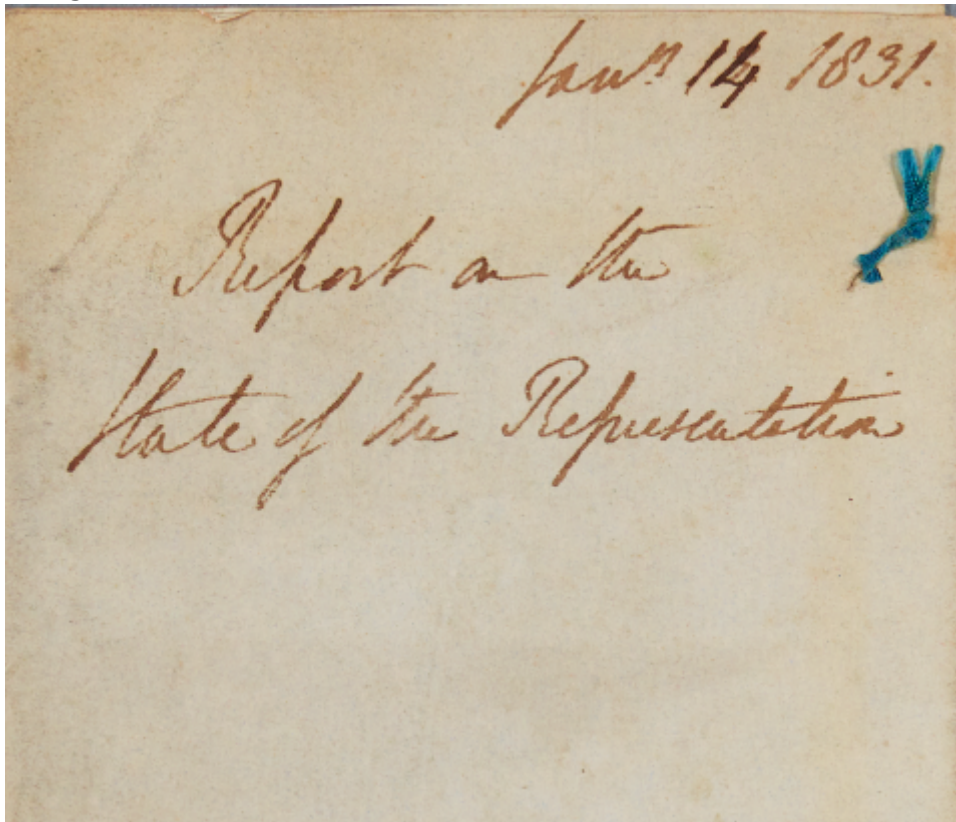 Jany 14 1831.
Report on the
State of the Representation